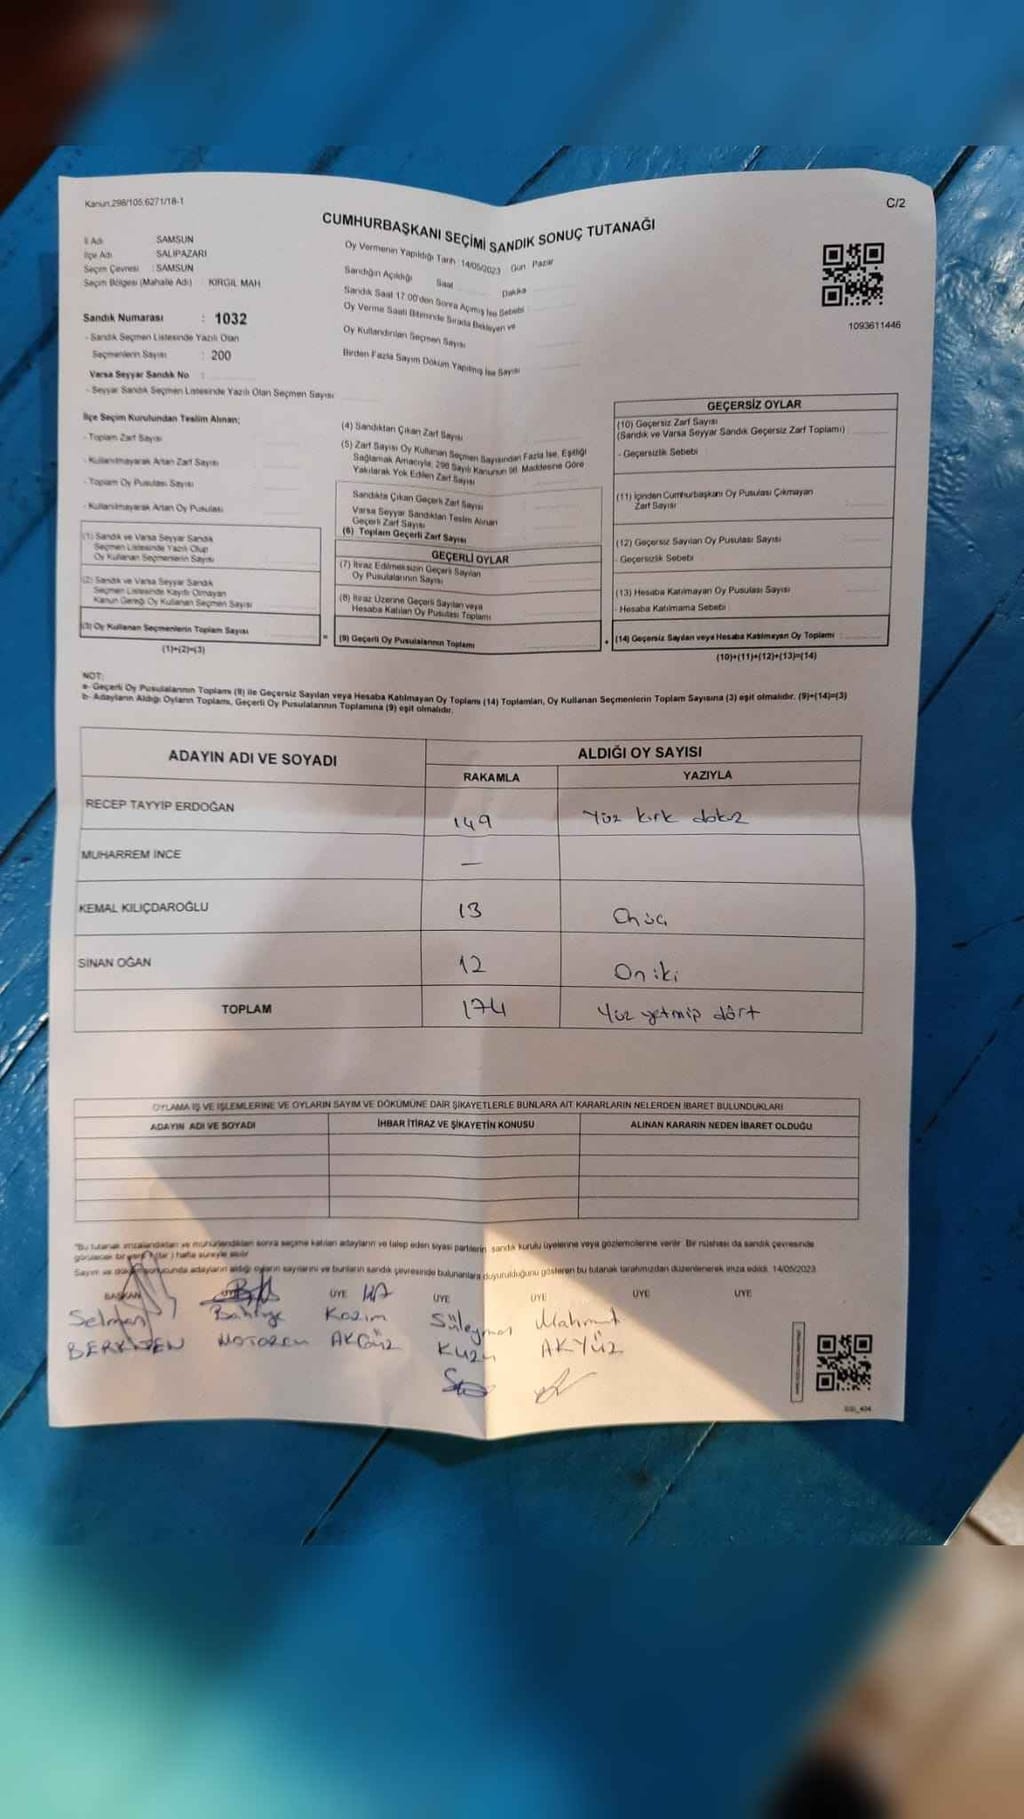 Kanun.298/105,6271/18-1
C/2
CUMHURBAŞKANI SEÇİMİ SANDIK SONUÇ TUTANAĞI
İl Adı SAMSUN
İlçe Adı SALIPAZARI
Seçim Çevresi : SAMSUN
Seçim Bölgesi (Mahalle Adı) : KIRGIL MAH
Sandık Numarası : 1032
- Sandık Seçmen Listesinde Yazılı Olan
Seçmenlerin Sayısı : 200
Varsa Seyyar Sandık No :
- Seyyar Sandık Seçmen Listesinde Yazılı Olan Seçmen Sayısı
Oy Vermenin Yapıldığı Tarih :14/05/2023 Gün : Pazar
Sandığın Açıldığı Saat Dakika
Sandık Saat 17:00'den Sonra Açılmış İse Sebebi
Oy Verme Saati Bitiminde Sırada Bekleyen ve
Oy Kullandırılan Seçmen Sayısı
Birden Fazla Sayım Döküm Yapılmış İse Sayısı
1093611446
İlçe Seçim Kurulundan Teslim Alınan;
- Toplam Zarf Sayısı
- Kullanılmayarak Artan Zarf Sayısı
- Toplam Oy Pusulası Sayısı
- Kullanılmayarak Artan Oy Pusulası
(1) Sandık ve Varsa Seyyar Sandık
Seçmen Listesinde Yazılı Olup
Oy Kullanan Seçmenlerin Sayısı
(2) Sandık ve Varsa Seyyar Sandık
Seçmen Listesinde Kaydı Olmayan
Kanun Gereği Oy Kullanan Seçmen Sayısı
(3) Oy Kullanan Seçmenlerin Toplam Sayısı
(1)+(2)=(3)
(4) Sandıktan Çıkan Zarf Sayısı
(5) Zarf Sayısı Oy Kullanan Seçmen Sayısından Fazla İse, Eşitliği
Sağlamak Amacıyla, 298 Sayılı Kanunun 98. Maddesine Göre
Yakılarak Yok Edilen Zarf Sayısı
Sandıkta Çıkan Geçerli Zarf Sayısı
Varsa Seyyar Sandıktan Teslim Alınan
Geçerli Zarf Sayısı
(6) Toplam Geçerli Zarf Sayısı
GEÇERLİ OYLAR
(7) İtiraz Edilmeksizin Geçerli Sayılan
Oy Pusulalarının Sayısı
(8) İtiraz Üzerine Geçerli Sayılan veya
Hesaba Katılan Oy Pusulası Toplamı
= (9) Geçerli Oy Pusulalarının Toplamı
GEÇERSİZ OYLAR
(10) Geçersiz Zarf Sayısı
(Sandık ve Varsa Seyyar Sandık Geçersiz Zarf Toplamı)
- Geçersizlik Sebebi
(11) İçinden Cumhurbaşkanı Oy Pusulası Çıkmayan
Zarf Sayısı
(12) Geçersiz Sayılan Oy Pusulası Sayısı
- Geçersizlik Sebebi
(13) Hesaba Katılmayan Oy Pusulası Sayısı
- Hesaba Katılmama Sebebi
+ (14) Geçersiz Sayılan veya Hesaba Katılmayan Oy Toplamı
(10)+(11)+(12)+(13)=(14)
NOT:
a- Geçerli Oy Pusulalarının Toplamı (9) ile Geçersiz Sayılan veya Hesaba Katılmayan Oy Toplamı (14) Toplamları, Oy Kullanan Seçmenlerin Toplam Sayısına (3) eşit olmalıdır. (9)+(14)=(3)
b- Adayların Aldığı Oyların Toplamı, Geçerli Oy Pusulalarının Toplamına (9) eşit olmalıdır.
ADAYIN ADI VE SOYADI ALDIĞI OY SAYISI
RAKAMLA YAZIYLA
RECEP TAYYİP ERDOĞAN 149 Yüz kırk dokuz
MUHARREM İNCE —
KEMAL KILIÇDAROĞLU 13 Onüç
SİNAN OĞAN 12 On iki
TOPLAM 174 Yüz yetmiş dört
OYLAMA İŞ VE İŞLEMLERİNE VE OYLARIN SAYIM VE DÖKÜMÜNE DAİR ŞİKAYETLERLE BUNLARA AİT KARARLARIN NELERDEN İBARET BULUNDUKLARI
ADAYIN ADI VE SOYADI İHBAR İTİRAZ VE ŞİKAYETİN KONUSU ALINAN KARARIN NEDEN İBARET OLDUĞU
"Bu tutanak imzalandıktan ve mühürlendikten sonra seçime katılan adayların ve talep eden siyasi partilerin sandık kurulu üyelerine veya gözlemcilerine verilir. Bir nüshası da sandık çevresinde
görülecek bir yere hafta süreyle asılır
Sayım ve döküm sonucunda adayların aldığı oyların sayılarını ve bunların sandık çevresinde bulunanlara duyurulduğunu gösteren bu tutanak tarafımızdan düzenlenerek imza edildi. 14/05/2023
BAŞKAN ÜYE ÜYE ÜYE ÜYE ÜYE
Selman Bahtiye Kazim Süleyman Mahmut
AKGÜZ KUZU AKYÜZ